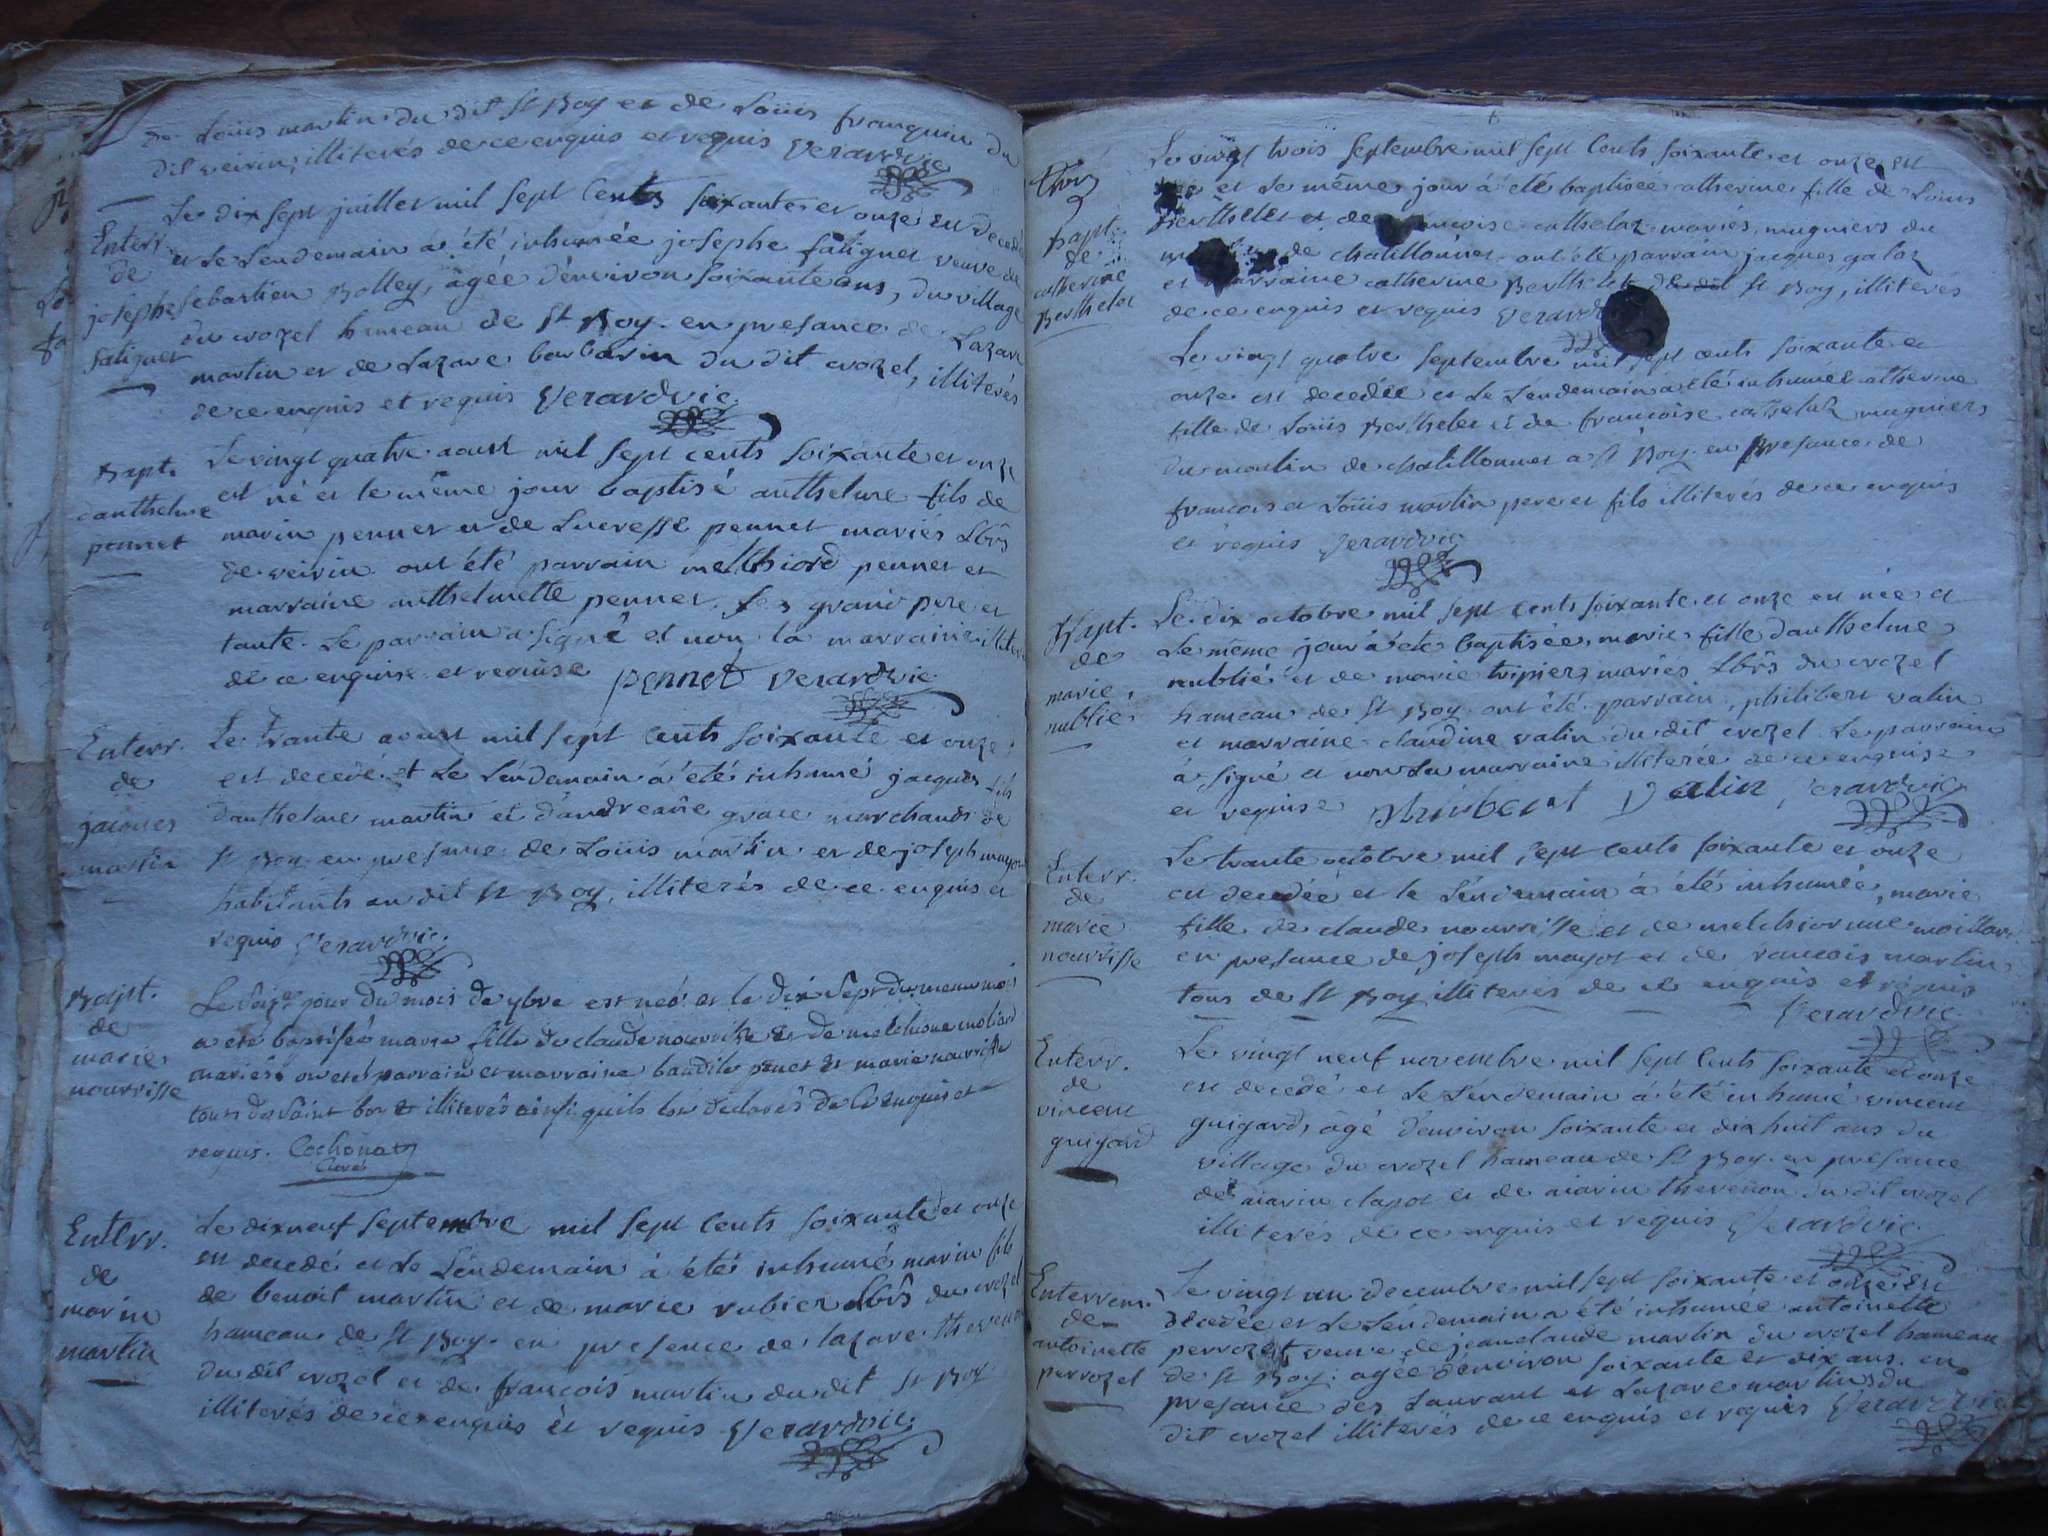 de Loüis martin du dit St Boy et de Loüis franquin du
dit veirin, illiterés de ce enquis et requis Verard vic
Enterr.
de
josephe
faliguet
Le dix sept juillet mil sept Cents soixante et onze est decedée
et le Lendemain a été inhumée josephe faliguet veuve de
sebastien Bolley, agée d'environ soixante ans, du village
du crozel hameau de St Boy. en presance de Lazare
martin et de Lazare barbarin du dit crozel, illiterés
de ce enquis et requis Verard vic.
Bapt.
d'anthelme
pennet
Le vingt quatre aoust mil sept cents soixante et onze
est né et le même jour baptisé anthelme fils de
marin pennet et de Lucresse pennet mariés Lbrs
de veirin. ont été parrain melchiord pennet et
marraine anthelmette pennet. ses grand pere et
tante. Le parrain a signé et non la marraine illiterée
de ce enquise et requise pennet Verard vic.
Enterr.
de
jacques
martin
Le trante aoust mil sept cents soixante et onze
est decedé et le Lendemain à été inhumé jacques fils
d'anthelme martin et d'andreanne grace marchands de
St Boy en presance de Loüis martin et de joseph mayot
habitants au dit St Boy, illiterés de ce enquis et
requis Verard vic.
Bapt.
de
marie
nourrisse
Le seize jour du mois de 7bre est neé et le dix sept du meme mois
a eté baptiseé marie fille de claude nourrisse et de melchione moliard
mariés. on eté parrain et marraine baudile penet et marie nourrisse
tous de saint boy et illiterés ainsi quils lon declarés de ce enquis et
requis. Cochonat
Curé
Enterr.
de
marin
martin
Le dixneuf septembre mil sept Cents soixante et onze
est decedé et le Lendemain à été inhumé marin fils
de benoit martin et de marie rubier Lbrs du crozel
hameau de St Boy. en presence de lazare thevenon
du dit crozel et de françois martin du dit St Boy
illiterés de ce enquis et requis Verard vic.
Bapt.
de
catherine
Berthelet
Le vingt trois septembre mil sept Cents soixante et onze est
née et le même jour à été baptisée catherine fille de Loüis
Berthelet et de françoise cathelaz mariés, mugniers du
de chatillonnet. ont été parrain jacques galaz
et marraine catherine Berthelet du dit St Boy, illiteres
de ce enquis et requis Verard
Le vingt quatre septembre mil sept cents soixante et
onze est decedée et le Lendemain a été inhumée catherine
fille de Loüis Berthelet et de françoise cathelaz mugniers
du moulin de chatillonnet a St Boy. en presance de
françois et Loüis martin pere et fils illiterés de ce enquis
et requis Verard vic.
Bapt.
de
marie
nublié
Le dix octobre mil sept cents soixante et onze est née et
Le même jour à été baptisée marie fille d'anthelme
nublié et de marie tripier mariés Lbrs du crozel
hameau de St Boy. ont été parrain, philibert valin
et marraine claudine valin du dit crozel. Le parrain
à signé et non la marraine illiterée de ce enquise
et requise philibert Valin, Verard vic.
Enterr.
de
marie
nourrisse
Le trante octobre mil sept cents soixante et onze
est decedée et le Lendemain à été inhumée, marie
fille de claude nourrisse et de melchionne moillard
en presance de joseph mayot et de francois martin
tous de St Boy illiteres de ce enquis et requis
Verard vic.
Enterr.
de
vincent
guigard
Le vingt neuf novembre mil sept Cents soixante et onze
est decedé et le Lendemain à été inhumé vincent
guigard, âgé d'environ soixante et dix huit ans du
village du crozel hameau de St Boy. en presance
de marin clapot et de marin thevenon du dit crozel
illiterés de ce enquis et requis Verard vic.
Enterrem.
de
antoinette
perrozet
Le vingt un decembre mil sept soixante et onze est
decedée et le Lendemain a été inhumée antoinette
perrozet veuve de jean claude martin du crozel hameau
de St Boy. agée denviron soixante et dix ans. en
presance des Laurant et Lazare martin du
dit crozel illiterés de ce enquis et requis Verard vic.